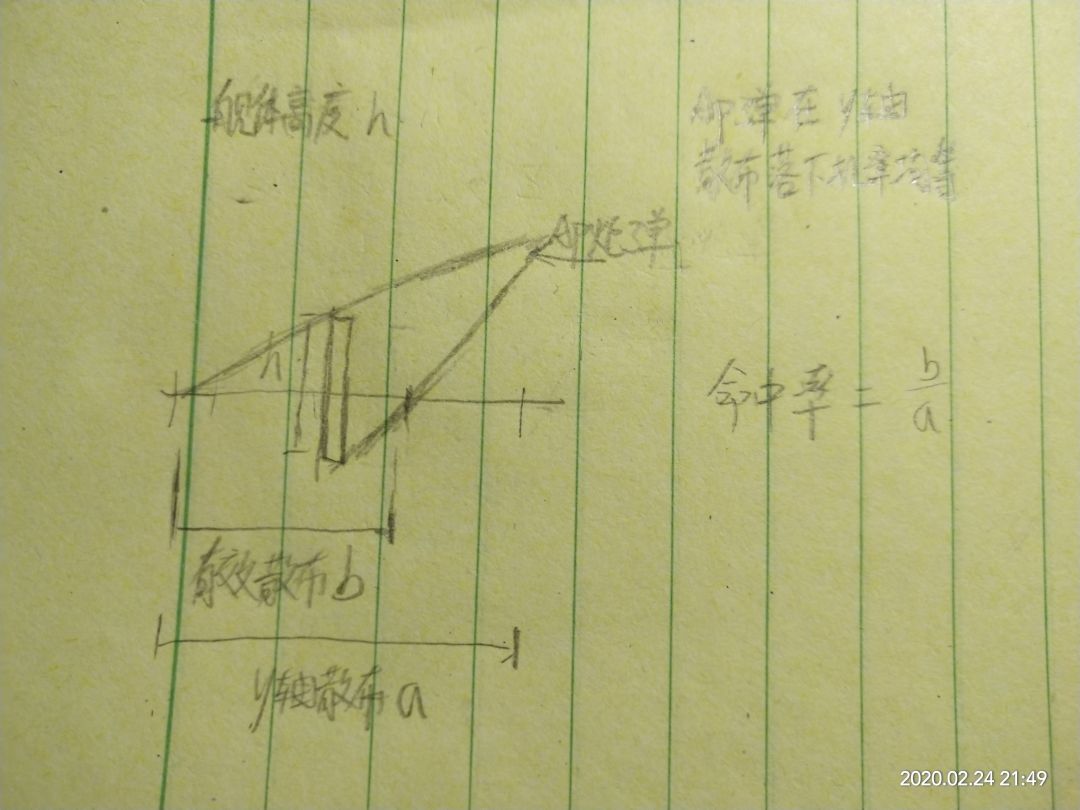 舰体高度h
AP弹在y轴
散布落下机率均等
AP炮弹
h
命中率=b/a
有效散布b
y轴散布a
2020.02.24 21:49